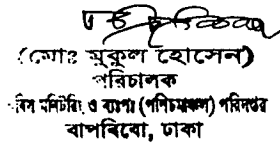 (মোঃ মুকুল হোসেন)
পরিচালক
পবিস মনিটরিং ও ব্যাপ্র (পশ্চিমাঞ্চল) পরিদপ্তর
বাপবিবো, ঢাকা